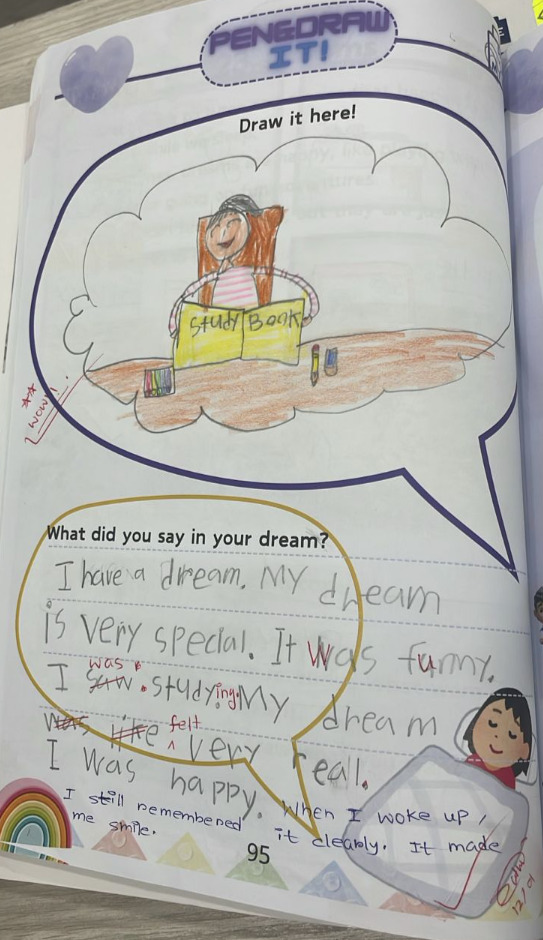 PEN&DRAW
IT!
Draw it here!
Study Book
WOW!
What did you say in your dream?
I have a dream. My dream
is very special. It was funny.
I saw was. studying. My dream
was like felt very reall.
I was happy. When I woke up,
I still remembered it clearly. It made
me smile.
95